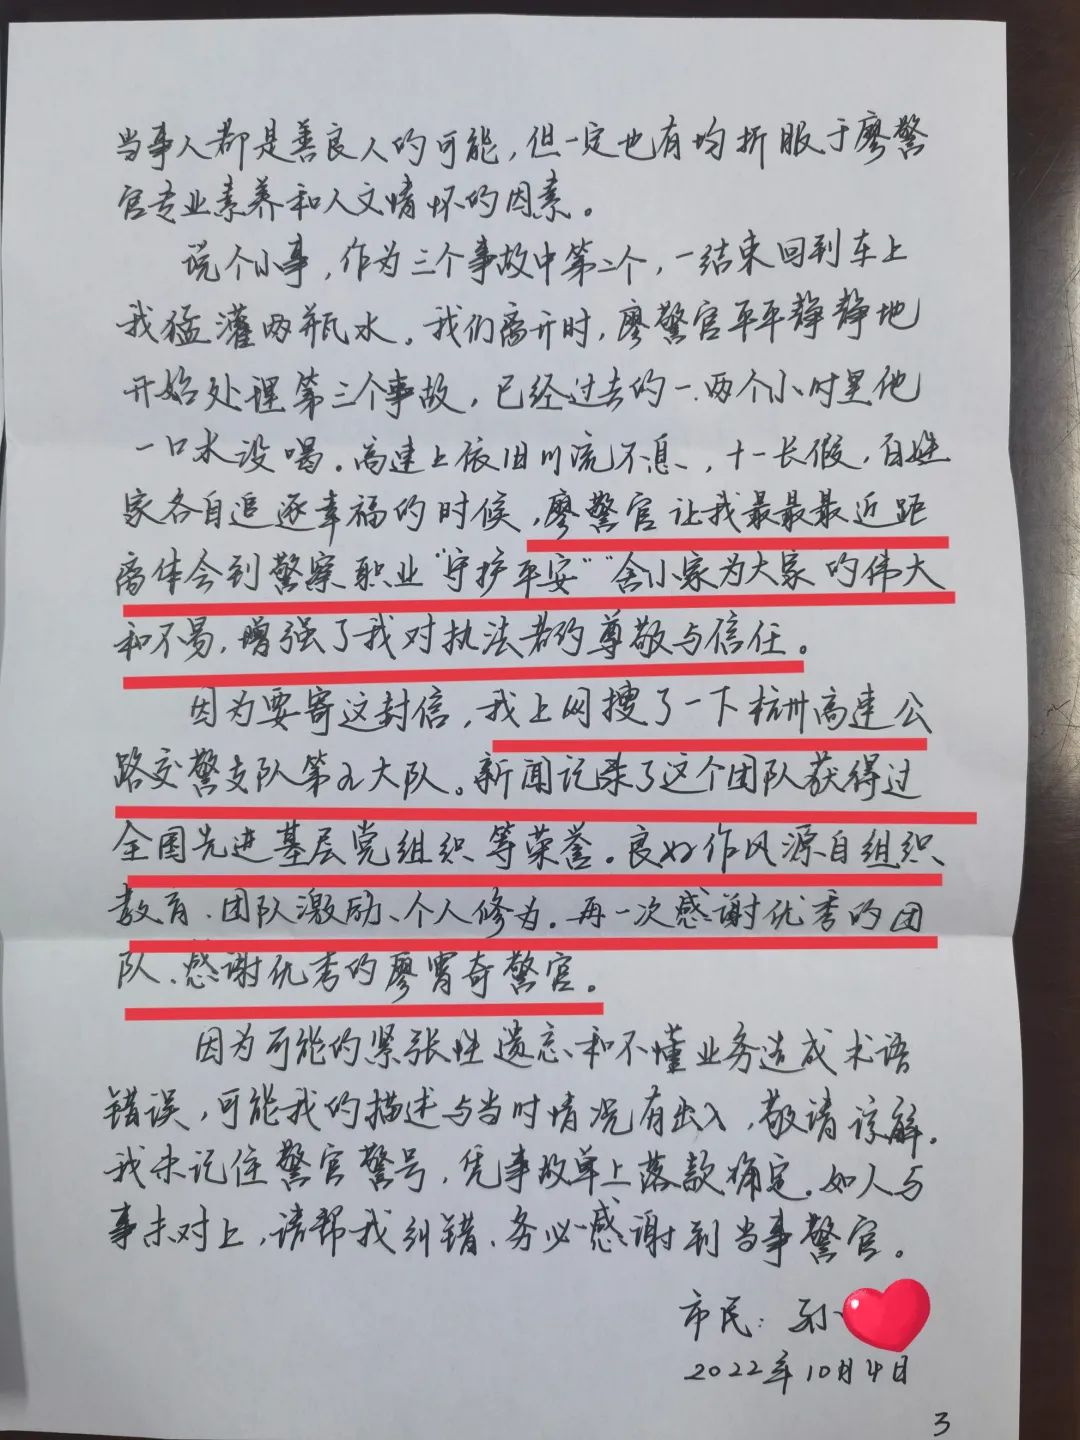 当事人都是善良人的可能，但一定也有均折服于廖警
官专业素养和人文情怀的因素。
说个小事，作为三个事故中第二个，一结束回到车上
我猛灌两瓶水。我们离开时，廖警官平平静静地
开始处理第三个事故，已经过去的一、两个小时里他
一口水没喝。高速上依旧川流不息、，十一长假，百姓
家各自追逐幸福的时候，廖警官让我最最最近距
离体会到警察职业“守护平安”“舍小家为大家的伟大
和不易，增强了我对执法者的尊敬与信任。
因为要寄这封信，我上网搜了一下杭州高速公
路交警支队第九大队。新闻记录了这个团队获得过
全国先进基层党组织等荣誉。良好作风源自组织
教育、团队激励、个人修为。再一次感谢优秀的团
队、感谢优秀的廖宵奇警官。
因为可能的紧张性遗忘、和不懂业务造成术语
错误，可能我的描述与当时情况有出入，敬请谅解。
我未记住警官警号，凭事故单上落款确定。如人与
事未对上，请帮我纠错、务必感谢到当事警官。
市民：孙
2022年10月4日
3